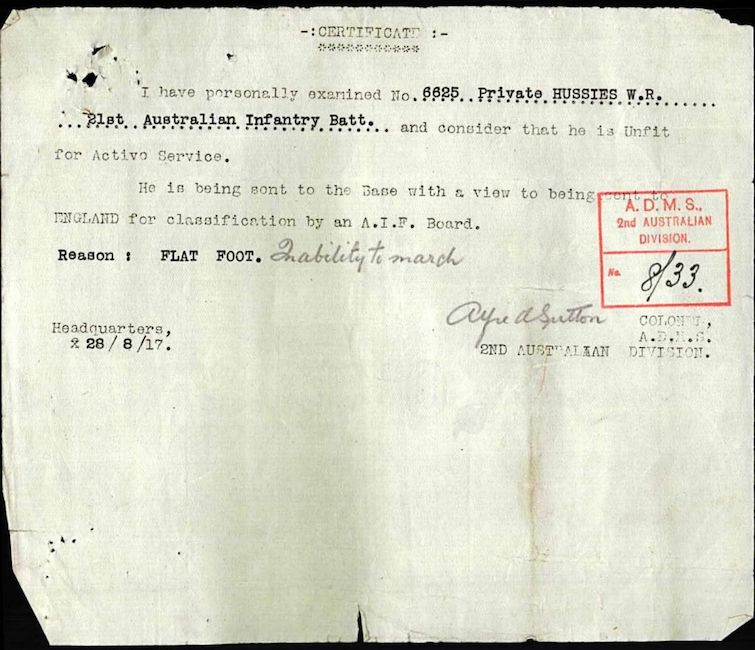 -:CERTIFICATE :-
***********
I have personally examined No. 6625.. Private HUSSIES W.R.......
... 21st Australian Infantry Batt... and consider that he is Unfit
for Activo Service.
He is being sent to the Base with a view to being sent to
ENGLAND for classification by an A.I.F. Board.
Reason : FLAT FOOT. Inability to march
A.D.M.S.,
2nd AUSTRALIAN
DIVISION.
No. 8/33.
Headquarters,
28/8/17.
Alfred Sutton COLONEL,
A.D.M.S.
2ND AUSTRALIAN DIVISION.